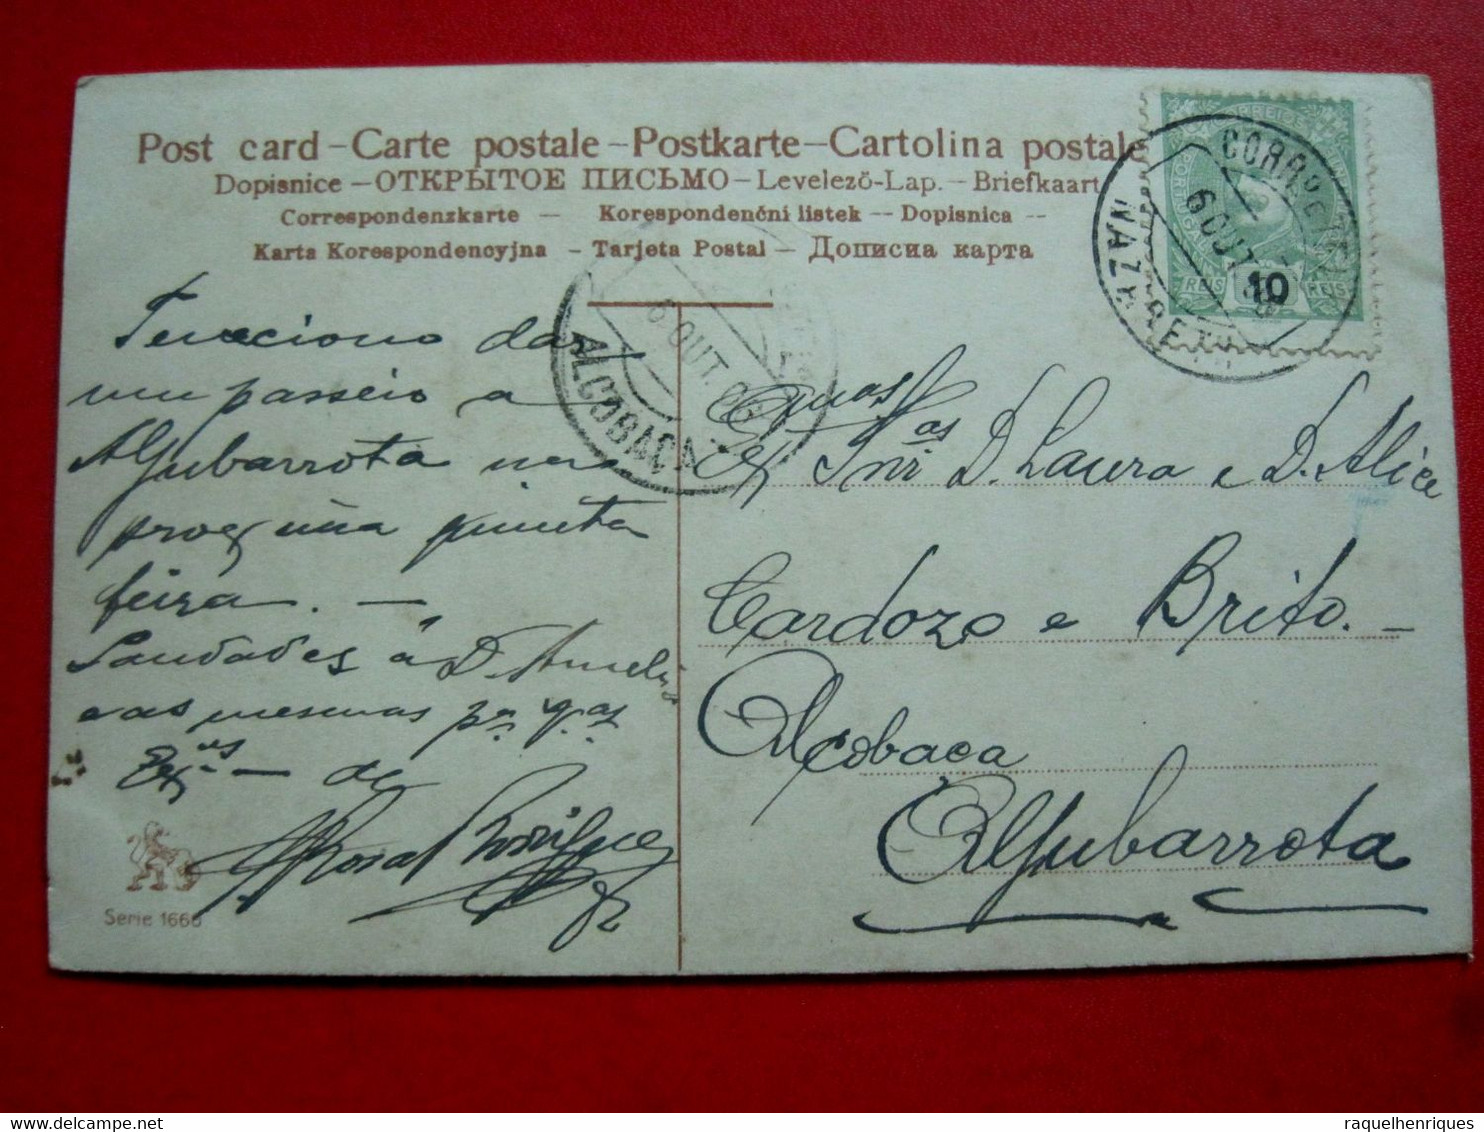 Post card – Carte postale – Postkarte – Cartolina postale
Dopisnice – ОТКРЫТОЕ ПИСЬМО – Levelezö-Lap. – Briefkaart
Correspondenzkarte – Korespondenční listek – Dopisnica –
Karta Korespondencyjna – Tarjeta Postal – Дописна карта
CORREIOS
PORTUGAL
REIS 10 REIS
6 OUT
NAZARETH
6 OUT. 06
ALCOBAÇA
Tenciono dar
um passeio a
Aljubarrota na
proxima quinta
feira. —
Saudades á D. Amelia
e as mesmas pa. V.as
Ex.as — de
Serie 1666
Ex.mas Snr.as D. Laura e D. Alice
Cardozo e Brito. —
Alcobaça
Aljubarrota
delcampe.net
raquelhenriques